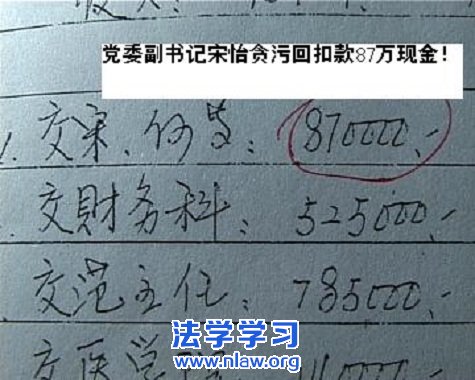 党委副书记宋怡贪污回扣款87万现金！
交宋、何
870000.-
交財务科：525000.-
交范主任：785000.-
法学学习
www.nlaw.org
交医